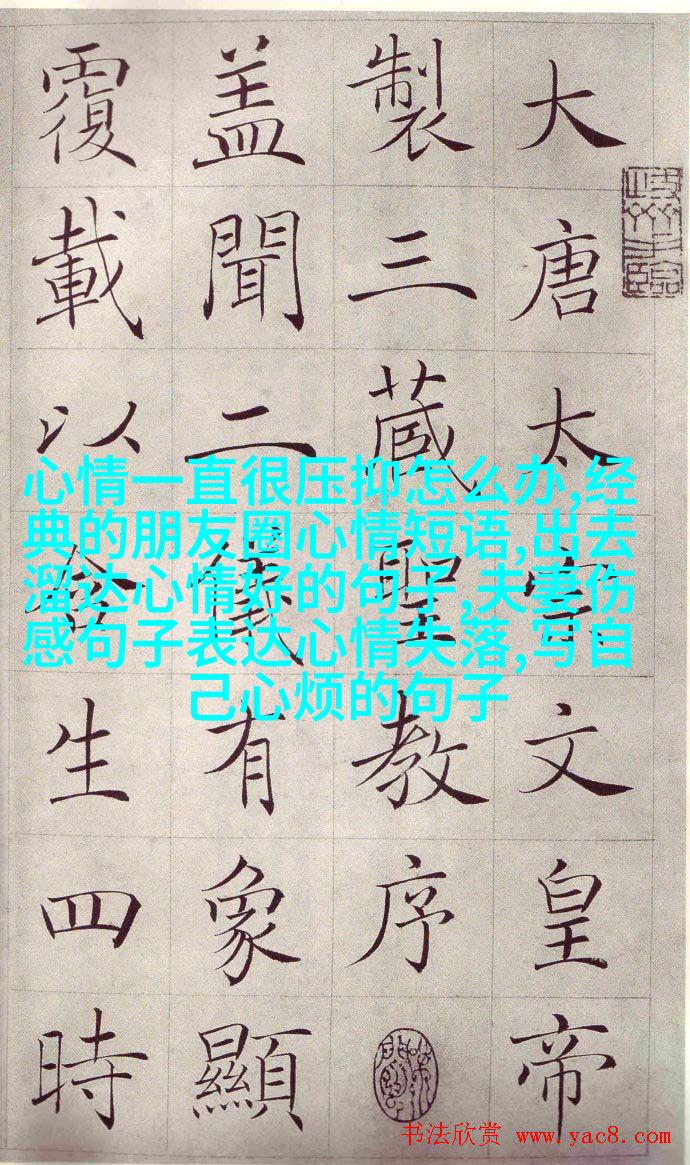 大唐太宗文皇帝
製三藏聖教序
盖聞二儀有象顯
覆載以含生四時
心情一直很压抑怎么办,经
典的朋友圈心情短语,出去
溜达心情好的句子,夫妻伤
感句子表达心情失落,写自
己心烦的句子
书法欣赏 www.yac8.com